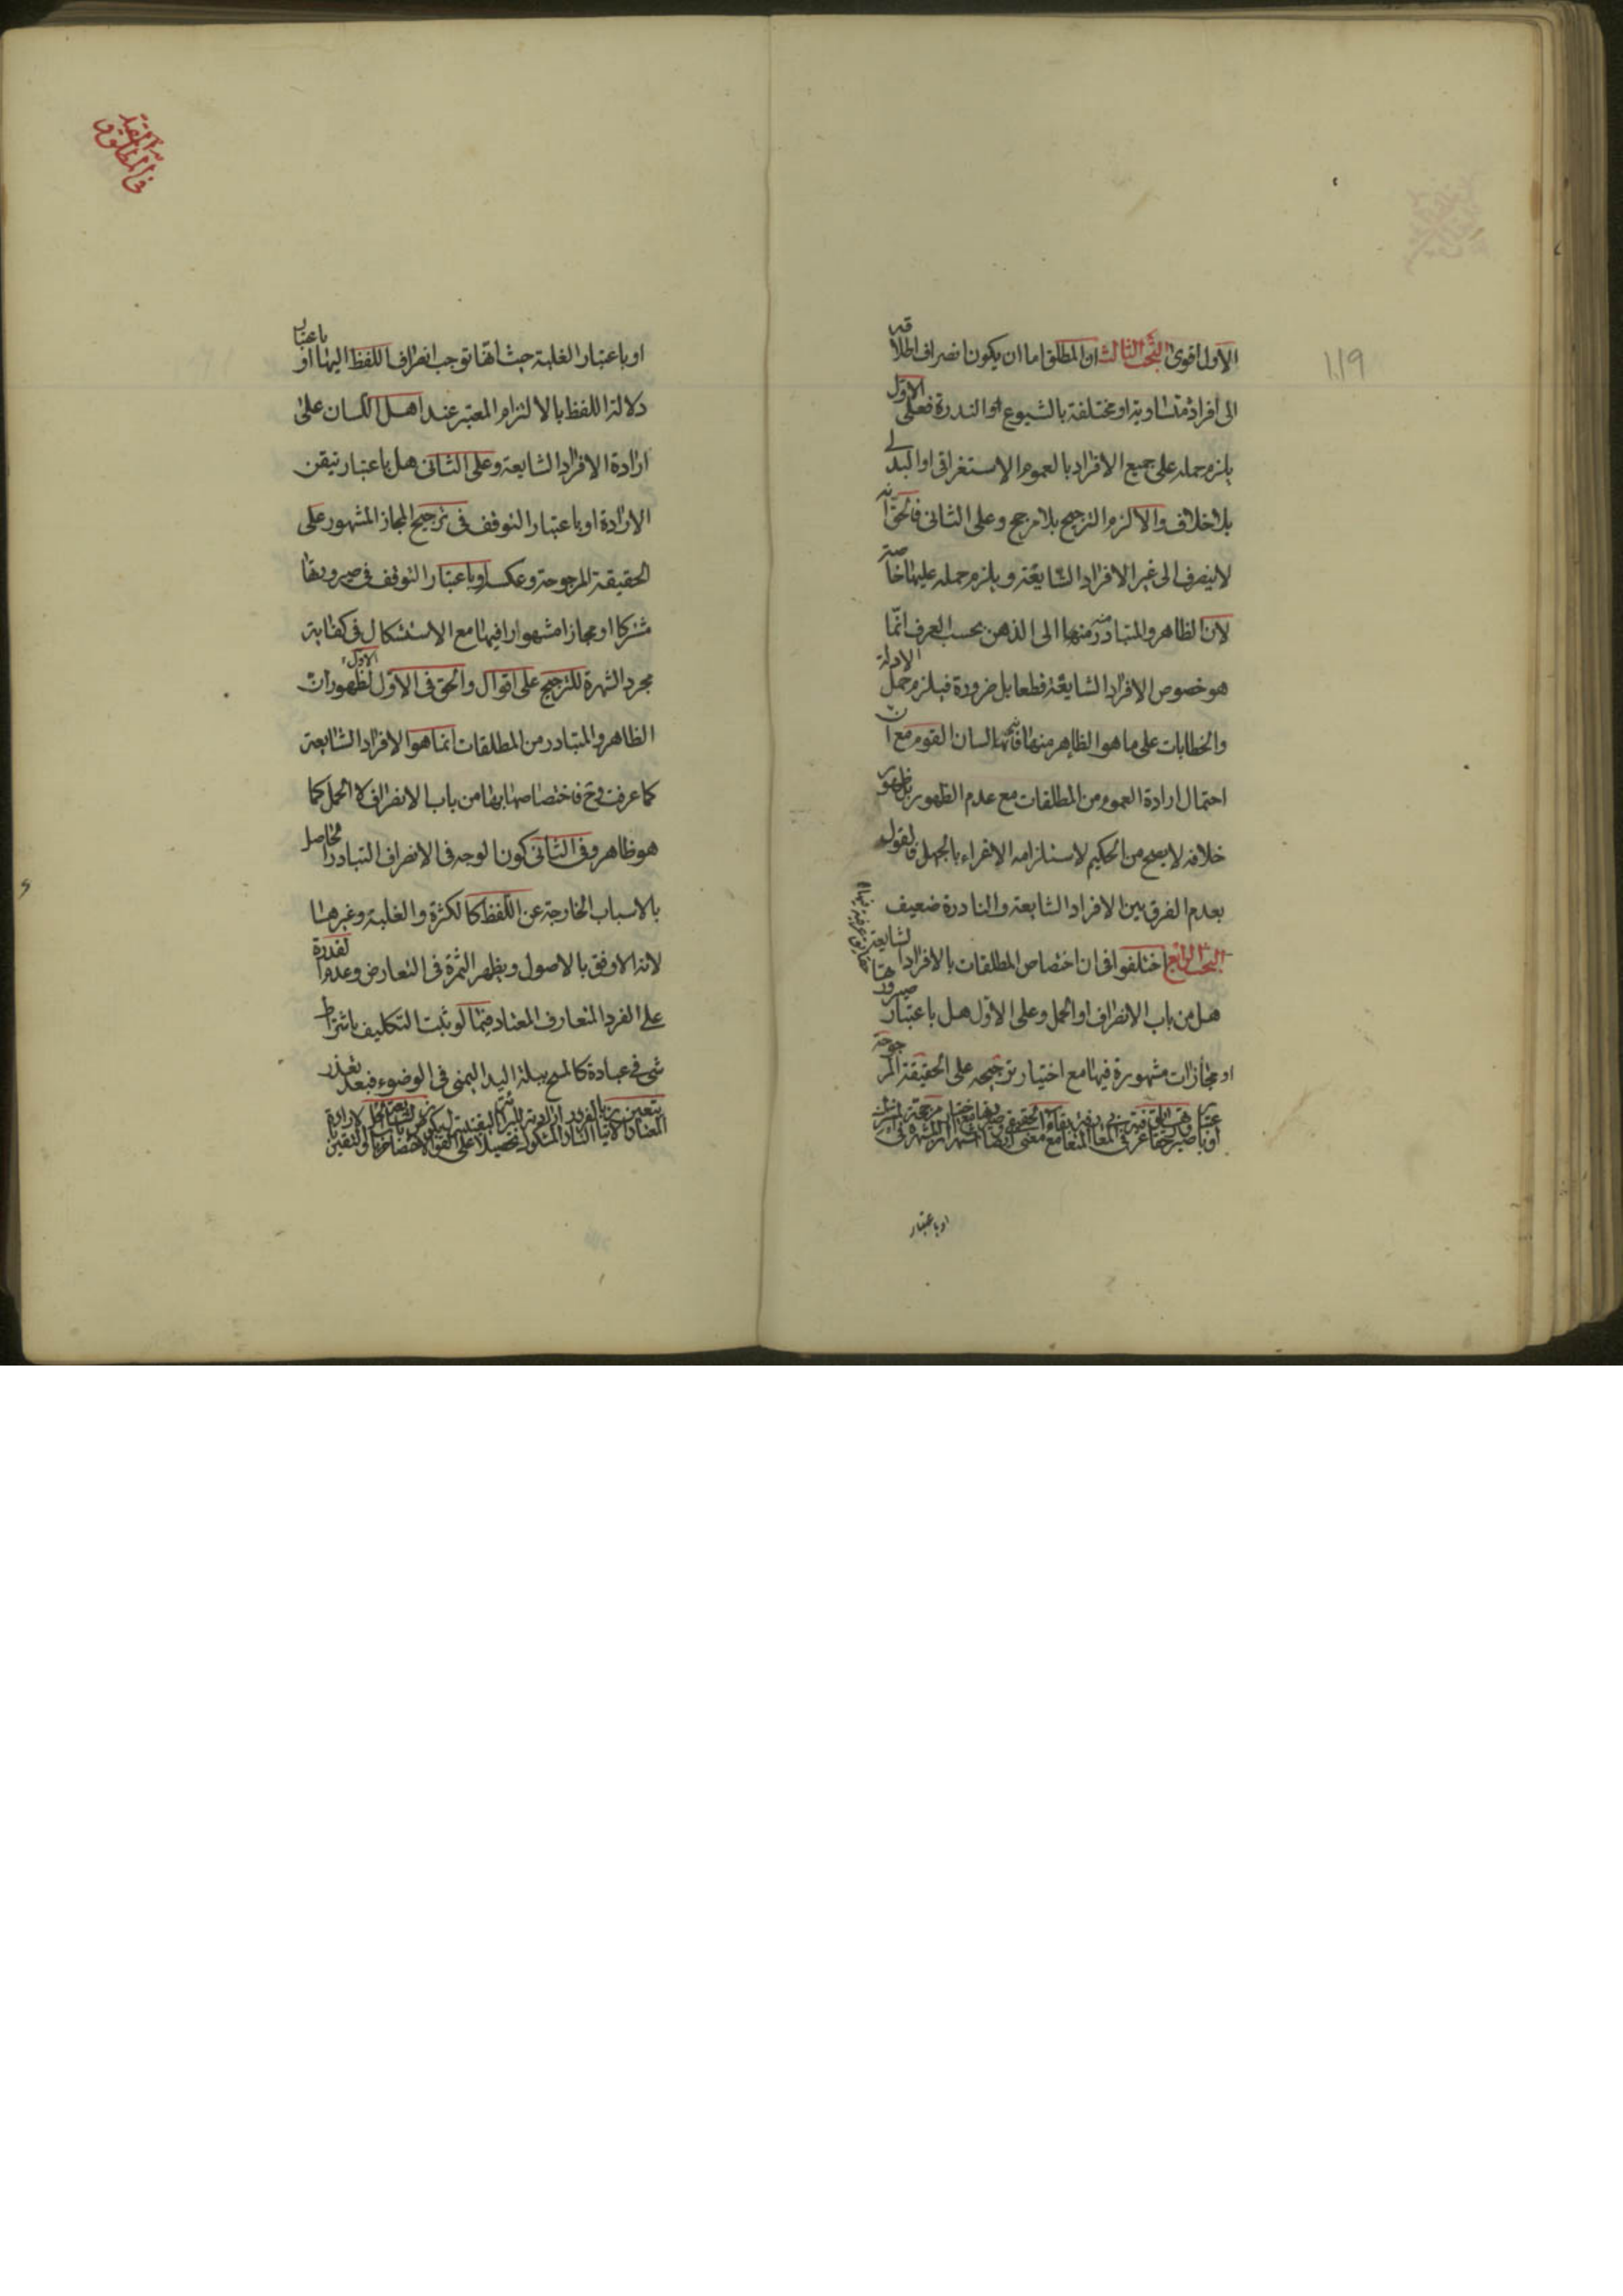 الاول اقوى البحث الثالث ان المطلق اما ان يكون انصراف اطلاقه
الى افراد متساوية او مختلفة بالشيوع او الندرة فعلى الاول
يلزم حمله على جميع الافراد بالعموم الاستغراقى او البدلى
بلا خلاف والا لزم الترجيح بلا مرجح وعلى الثانى فالحق انه
لا ينصرف الى غير الافراد الشايعة و يلزم حمله عليها خاصة
لان الظاهر والمتبادر منها الى الذهن بحسب العرف انما
هو خصوص الافراد الشايعة قطعا بل ضرورة فيلزم حمل الادلة
والخطابات على ما هو الظاهر منها لسان القوم مع ان
احتمال ارادة العموم من المطلقات مع عدم الظهور بل ظهور
خلافه لا يصح من الحكيم لاستلزامه الاغراء بالجهل فالقول
بعدم الفرق بين الافراد الشايعة والنادرة ضعيف
البحث الرابع اختلفوا فى ان اختصاص المطلقات بالافراد الشايعة
هل من باب الانصراف او الحمل وعلى الاول هل باعتبار صيرورتها
او مجازات مشهورة فيها مع اختيار ترجيحه على الحقيقة المرجوحة
او باعتبار
١١٩
فى المطلق والمقيد
او باعتبار الغلبة حيث انها توجب انصراف اللفظ اليها او باعتبار
دلالة اللفظ بالالتزام المعتبر عند اهل اللسان على
ارادة الافراد الشايعة وعلى الثانى هل باعتبار تيقن
الارادة او باعتبار التوقف فى ترجيح المجاز المشهور على
الحقيقة المرجوحة وعكسه او باعتبار التوقف فى صيرورتها
مشتركا او مجازا مشهورا فيها مع الاستشكال فى كفاية
مجرد الشهرة للترجيح على اقوال والحق فى الاول الاول لظهور ان
الظاهر والمتبادر من المطلقات انما هو الافراد الشايعة
كما عرفت وح فاختصاصها بها من باب الانصراف لا الحمل كما
هو ظاهر وفى الثانى كون الوجه فى الانصراف التبادر الحاصل
بالاسباب الخارجة عن اللفظ كالكثرة والغلبة وغيرهما
لانه الاوفق بالاصول ويظهر الثمرة فى التعارض وعدم القدرة
على الفرد المتعارف المعتاد فيما لو ثبت التكليف باشتراط
شئ فى عبادة كالمسح ببلة اليد اليمنى فى الوضوء فبعد تعذر